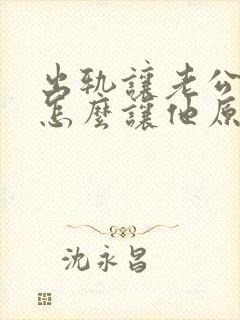 出軌讓老公
怎麼讓他原
沈永昌